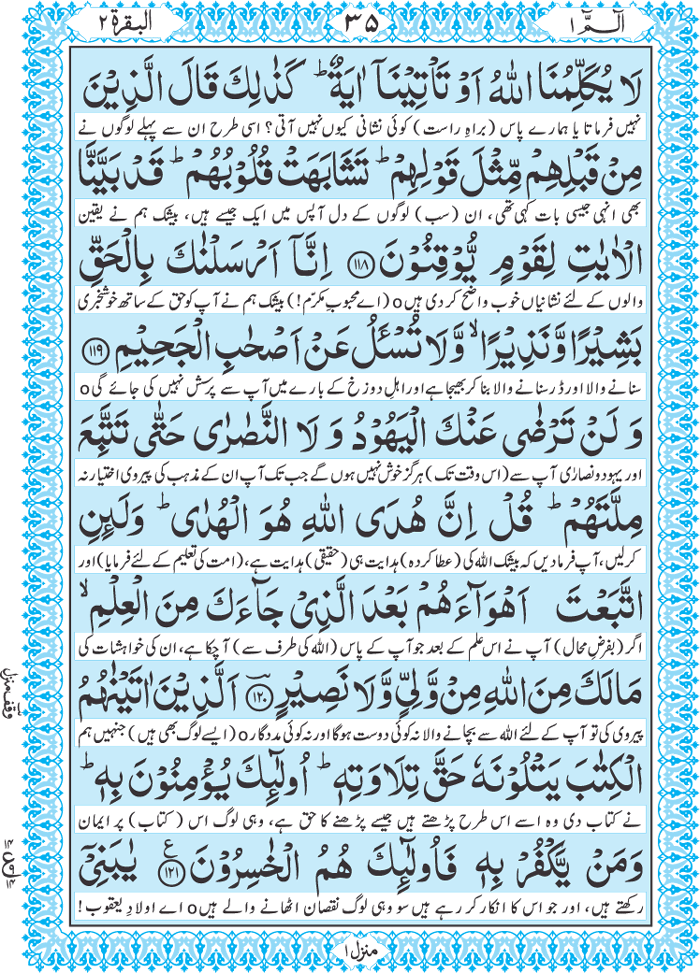 الٓمّٓ ١ ٣٥ البقرة ٢
لَا يُكَلِّمُنَا اللّٰهُ اَوْ تَاْتِيْنَاۤ اٰيَةٌ ؕ كَذٰلِكَ قَالَ الَّذِيْنَ
نہیں فرماتا یا ہمارے پاس (براہِ راست) کوئی نشانی کیوں نہیں آتی؟ اسی طرح ان سے پہلے لوگوں نے
مِنْ قَبْلِهِمْ مِّثْلَ قَوْلِهِمْ ؕ تَشَابَهَتْ قُلُوْبُهُمْ ؕ قَدْ بَيَّنَّا
بھی انہی جیسی بات کہی تھی، ان (سب) لوگوں کے دل آپس میں ایک جیسے ہیں، بیشک ہم نے یقین
الْاٰيٰتِ لِقَوْمٍ يُّوْقِنُوْنَ ﴿۱۱۸﴾ اِنَّاۤ اَرْسَلْنٰكَ بِالْحَقِّ
والوں کے لئے نشانیاں خوب واضح کر دی ہیں o (اے محبوبِ مکرّم!) بیشک ہم نے آپ کو حق کے ساتھ خوشخبری
بَشِيْرًا وَّ نَذِيْرًا ۙ وَّ لَا تُسْـَٔلُ عَنْ اَصْحٰبِ الْجَحِيْمِ ﴿۱۱۹﴾
سنانے والا اور ڈر سنانے والا بنا کر بھیجا ہے اور اہلِ دوزخ کے بارے میں آپ سے پرسش نہیں کی جائے گی o
وَ لَنْ تَرْضٰى عَنْكَ الْيَهُوْدُ وَ لَا النَّصٰرٰى حَتّٰى تَتَّبِعَ
اور یہود و نصارٰی آپ سے (اس وقت تک) ہرگز خوش نہیں ہوں گے جب تک آپ ان کے مذہب کی پیروی اختیار نہ
مِلَّتَهُمْ ؕ قُلْ اِنَّ هُدَى اللّٰهِ هُوَ الْهُدٰى ؕ وَ لَىِٕنِ
کر لیں، آپ فرما دیں کہ بیشک اللہ کی (عطا کردہ) ہدایت ہی (حقیقی) ہدایت ہے، (امت کی تعلیم کے لئے فرمایا) اور
اتَّبَعْتَ اَهْوَآءَهُمْ بَعْدَ الَّذِيْ جَآءَكَ مِنَ الْعِلْمِ ۙ
اگر (بفرضِ محال) آپ نے اس علم کے بعد جو آپ کے پاس (اللہ کی طرف سے) آ چکا ہے، ان کی خواہشات کی
مَا لَكَ مِنَ اللّٰهِ مِنْ وَّلِيٍّ وَّ لَا نَصِيْرٍ ﴿۱۲۰﴾ اَلَّذِيْنَ اٰتَيْنٰهُمُ
پیروی کی تو آپ کے لئے اللہ سے بچانے والا نہ کوئی دوست ہوگا اور نہ کوئی مددگار o (ایسے لوگ بھی ہیں) جنہیں ہم
الْكِتٰبَ يَتْلُوْنَهٗ حَقَّ تِلَاوَتِهٖ ؕ اُولٰٓىِٕكَ يُؤْمِنُوْنَ بِهٖ ؕ
نے کتاب دی وہ اسے اس طرح پڑھتے ہیں جیسے پڑھنے کا حق ہے، وہی لوگ اس (کتاب) پر ایمان
وَ مَنْ يَّكْفُرْ بِهٖ فَاُولٰٓىِٕكَ هُمُ الْخٰسِرُوْنَ ﴿۱۲۱﴾ ع يٰبَنِيْۤ
رکھتے ہیں، اور جو اس کا انکار کر رہے ہیں سو وہی لوگ نقصان اٹھانے والے ہیں o اے اولادِ یعقوب!
وقف منزل
منزل ۱